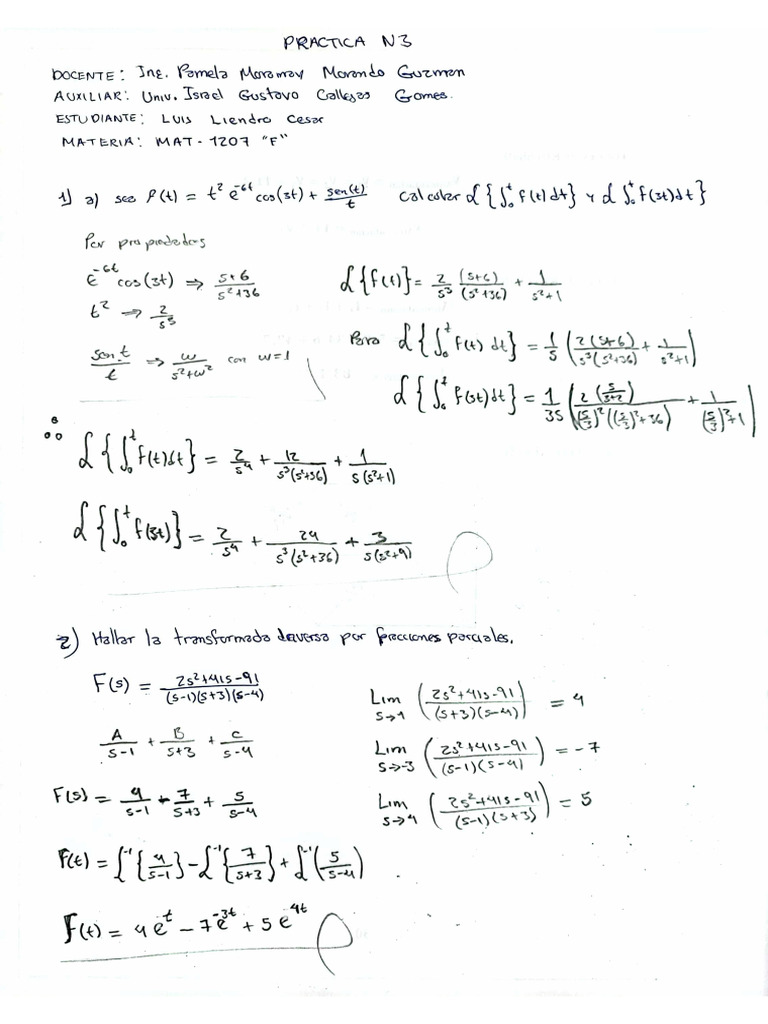 PRACTICA N3
DOCENTE: Ing. Pamela Maramay Morando Guzman
AUXILIAR: Univ. Israel Gustavo Callejas Gomes.
ESTUDIANTE: LUIS Liendro Cesar
MATERIA: MAT-1207 "F"
1) a) sea f(t) = t² e^-6t cos(3t) + sen(t)/t calcular ℒ{∫₀ᵗ f(t)dt} y ℒ ∫₀ᵗ f(3t)dt}
Por propiedades
e^-6t cos(3t) ⇒ s+6/s²+36
ℒ{f(t)} = 2/s³ (s+6)/(s²+36) + 1/s²+1
t² ⇒ 2/s³
sen t/t ⇒ w/s²+w² con w=1
Para ℒ{∫₀ᵗ f(t) dt} = 1/s (2(s+6)/s³(s²+36) + 1/s²+1)
ℒ{∫₀ᵗ f(3t)dt} = 1/3s (2(s/3+2)/(s/3)²((s/3)²+36) + 1/(s/3)²+1)
∴ ℒ{∫₀ᵗ f(t)dt} = 2/s⁴ + 12/s³(s²+36) + 1/s(s²+1)
ℒ{∫₀ᵗ f(3t)} = 2/s⁴ + 24/s³(s²+36) + 3/s(s²+9)
2) Hallar la transformada inversa por fracciones parciales.
F(s) = 2s²+41s-91/(s-1)(s+3)(s-4)
Lim s→1 (2s²+41s-91/(s+3)(s-4)) = 4
A/s-1 + B/s+3 + C/s-4
Lim s→-3 (2s²+41s-91/(s-1)(s-4)) = -7
F(s) = 4/s-1 - 7/s+3 + 5/s-4
Lim s→4 (2s²+41s-91/(s-1)(s+3)) = 5
F(t) = ℒ⁻¹{4/s-1} - ℒ⁻¹{7/s+3} + ℒ⁻¹(5/s-4)
F(t) = 4e^t - 7e^-3t + 5e^4t